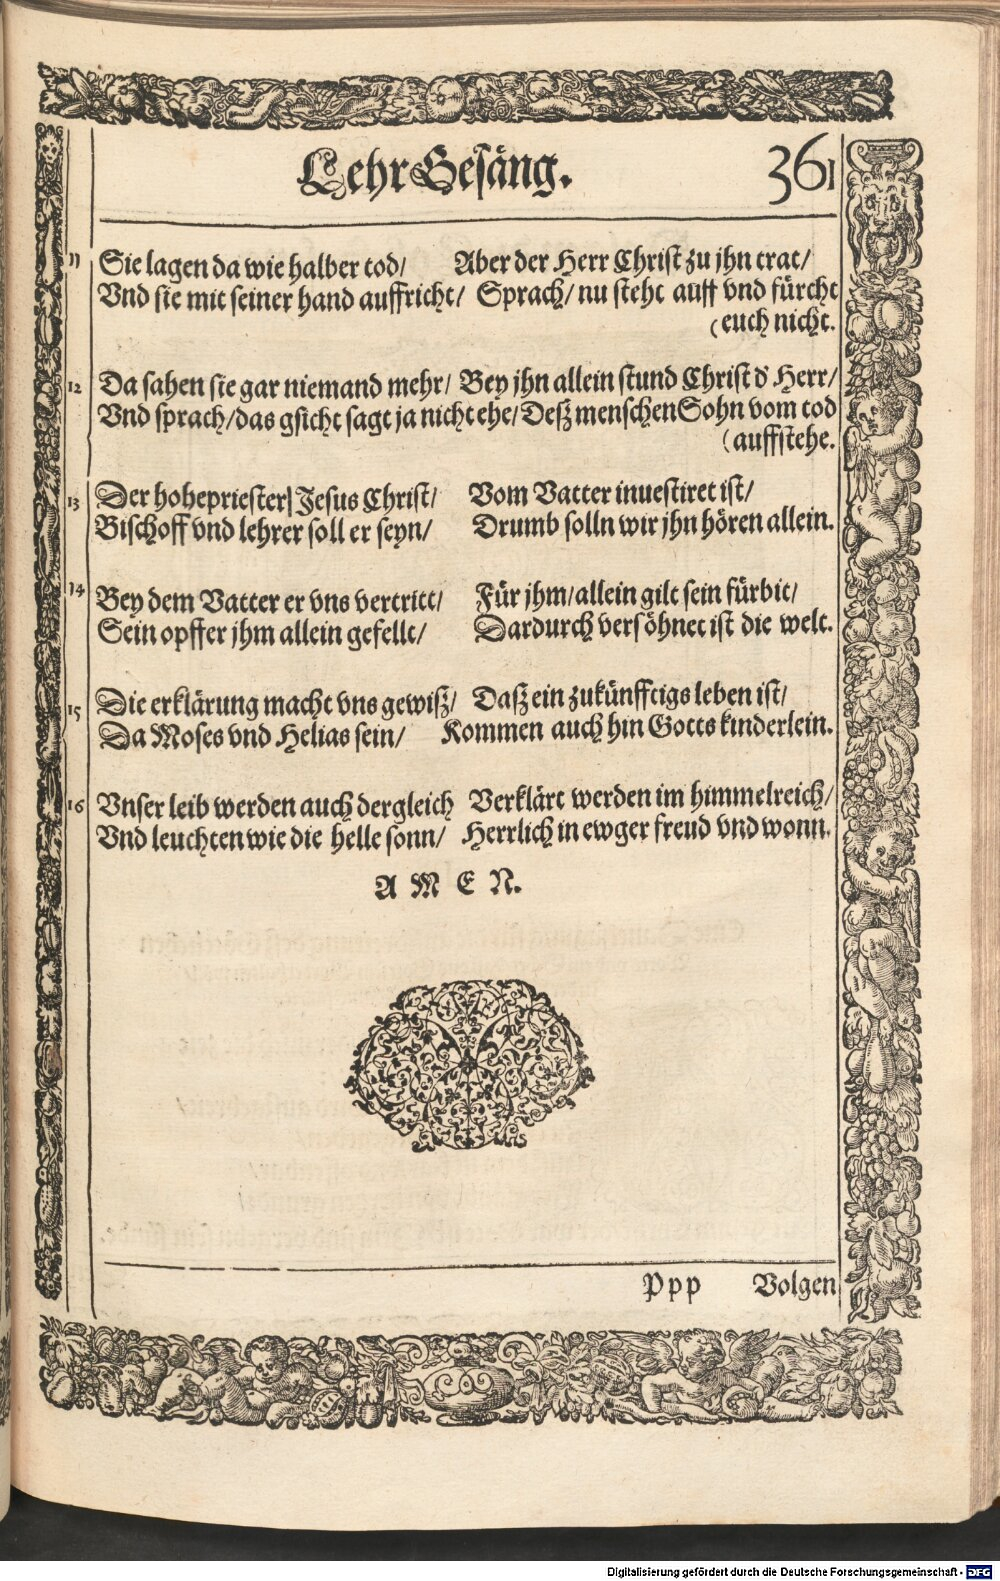 LehrGesäng. 361
11 Sie lagen da wie halber tod/ Aber der Herr Christ zu jhn trat/
Vnd sie mit seiner hand auffricht/ Sprach/ nu steht auff vnd fürcht
(euch nicht.
12 Da sahen sie gar niemand mehr/ Bey jhn allein stund Christ d' Herr/
Vnd sprach/das gsicht sagt ja nicht ehe/ Desz menschen Sohn vom tod
(auffstehe.
13 Der hohepriester/ Jesus Christ/ Vom Vatter inuestiret ist/
Bischoff vnd lehrer soll er seyn/ Drumb solln wir jhn hören allein.
14 Bey dem Vatter er vns vertritt/ Für jhm/allein gilt sein fürbit/
Sein opffer jhm allein gefellt/ Dardurch versöhnet ist die welt.
15 Die erklärung macht vns gewisz/ Dasz ein zukünfftigs leben ist/
Da Moses vnd Helias sein/ Kommen auch hin Gotts kinderlein.
16 Vnser leib werden auch dergleich Verklärt werden im himmelreich/
Vnd leuchten wie die helle sonn/ Herrlich in ewger freud vnd wonn.
A M E N.
Ppp Volgen
Digitalisierung gefördert durch die Deutsche Forschungsgemeinschaft - DFG